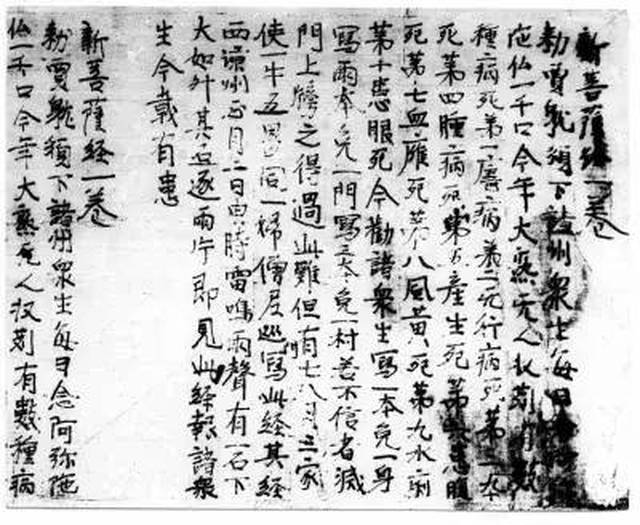 新菩薩經一卷
勑賈躭頒下諸州衆生每日
陁仏一千口今年大熟无人収刈有數
種病死第一瘧病第二行病死第一九
死第四腫病死第五產生死第患腹
死第七血癕死第八風黄死第九水痢
第十患眼死今勸諸衆生寫一本免一身
寫兩本免一門寫三本免一村若不信者滅
門上牓之得過此難但有七八月三家
使一牛五男同一婦僧尼巡寫此經其經
西涼州正月二日由時雷鳴雨聲有一石下
大如升其石遂兩片即見此經報諸衆
生今載有患
新菩薩経一卷
勑賈躭頒下諸州衆生每日念阿弥陁
仏一千口今年大熟无人収刈有數種病